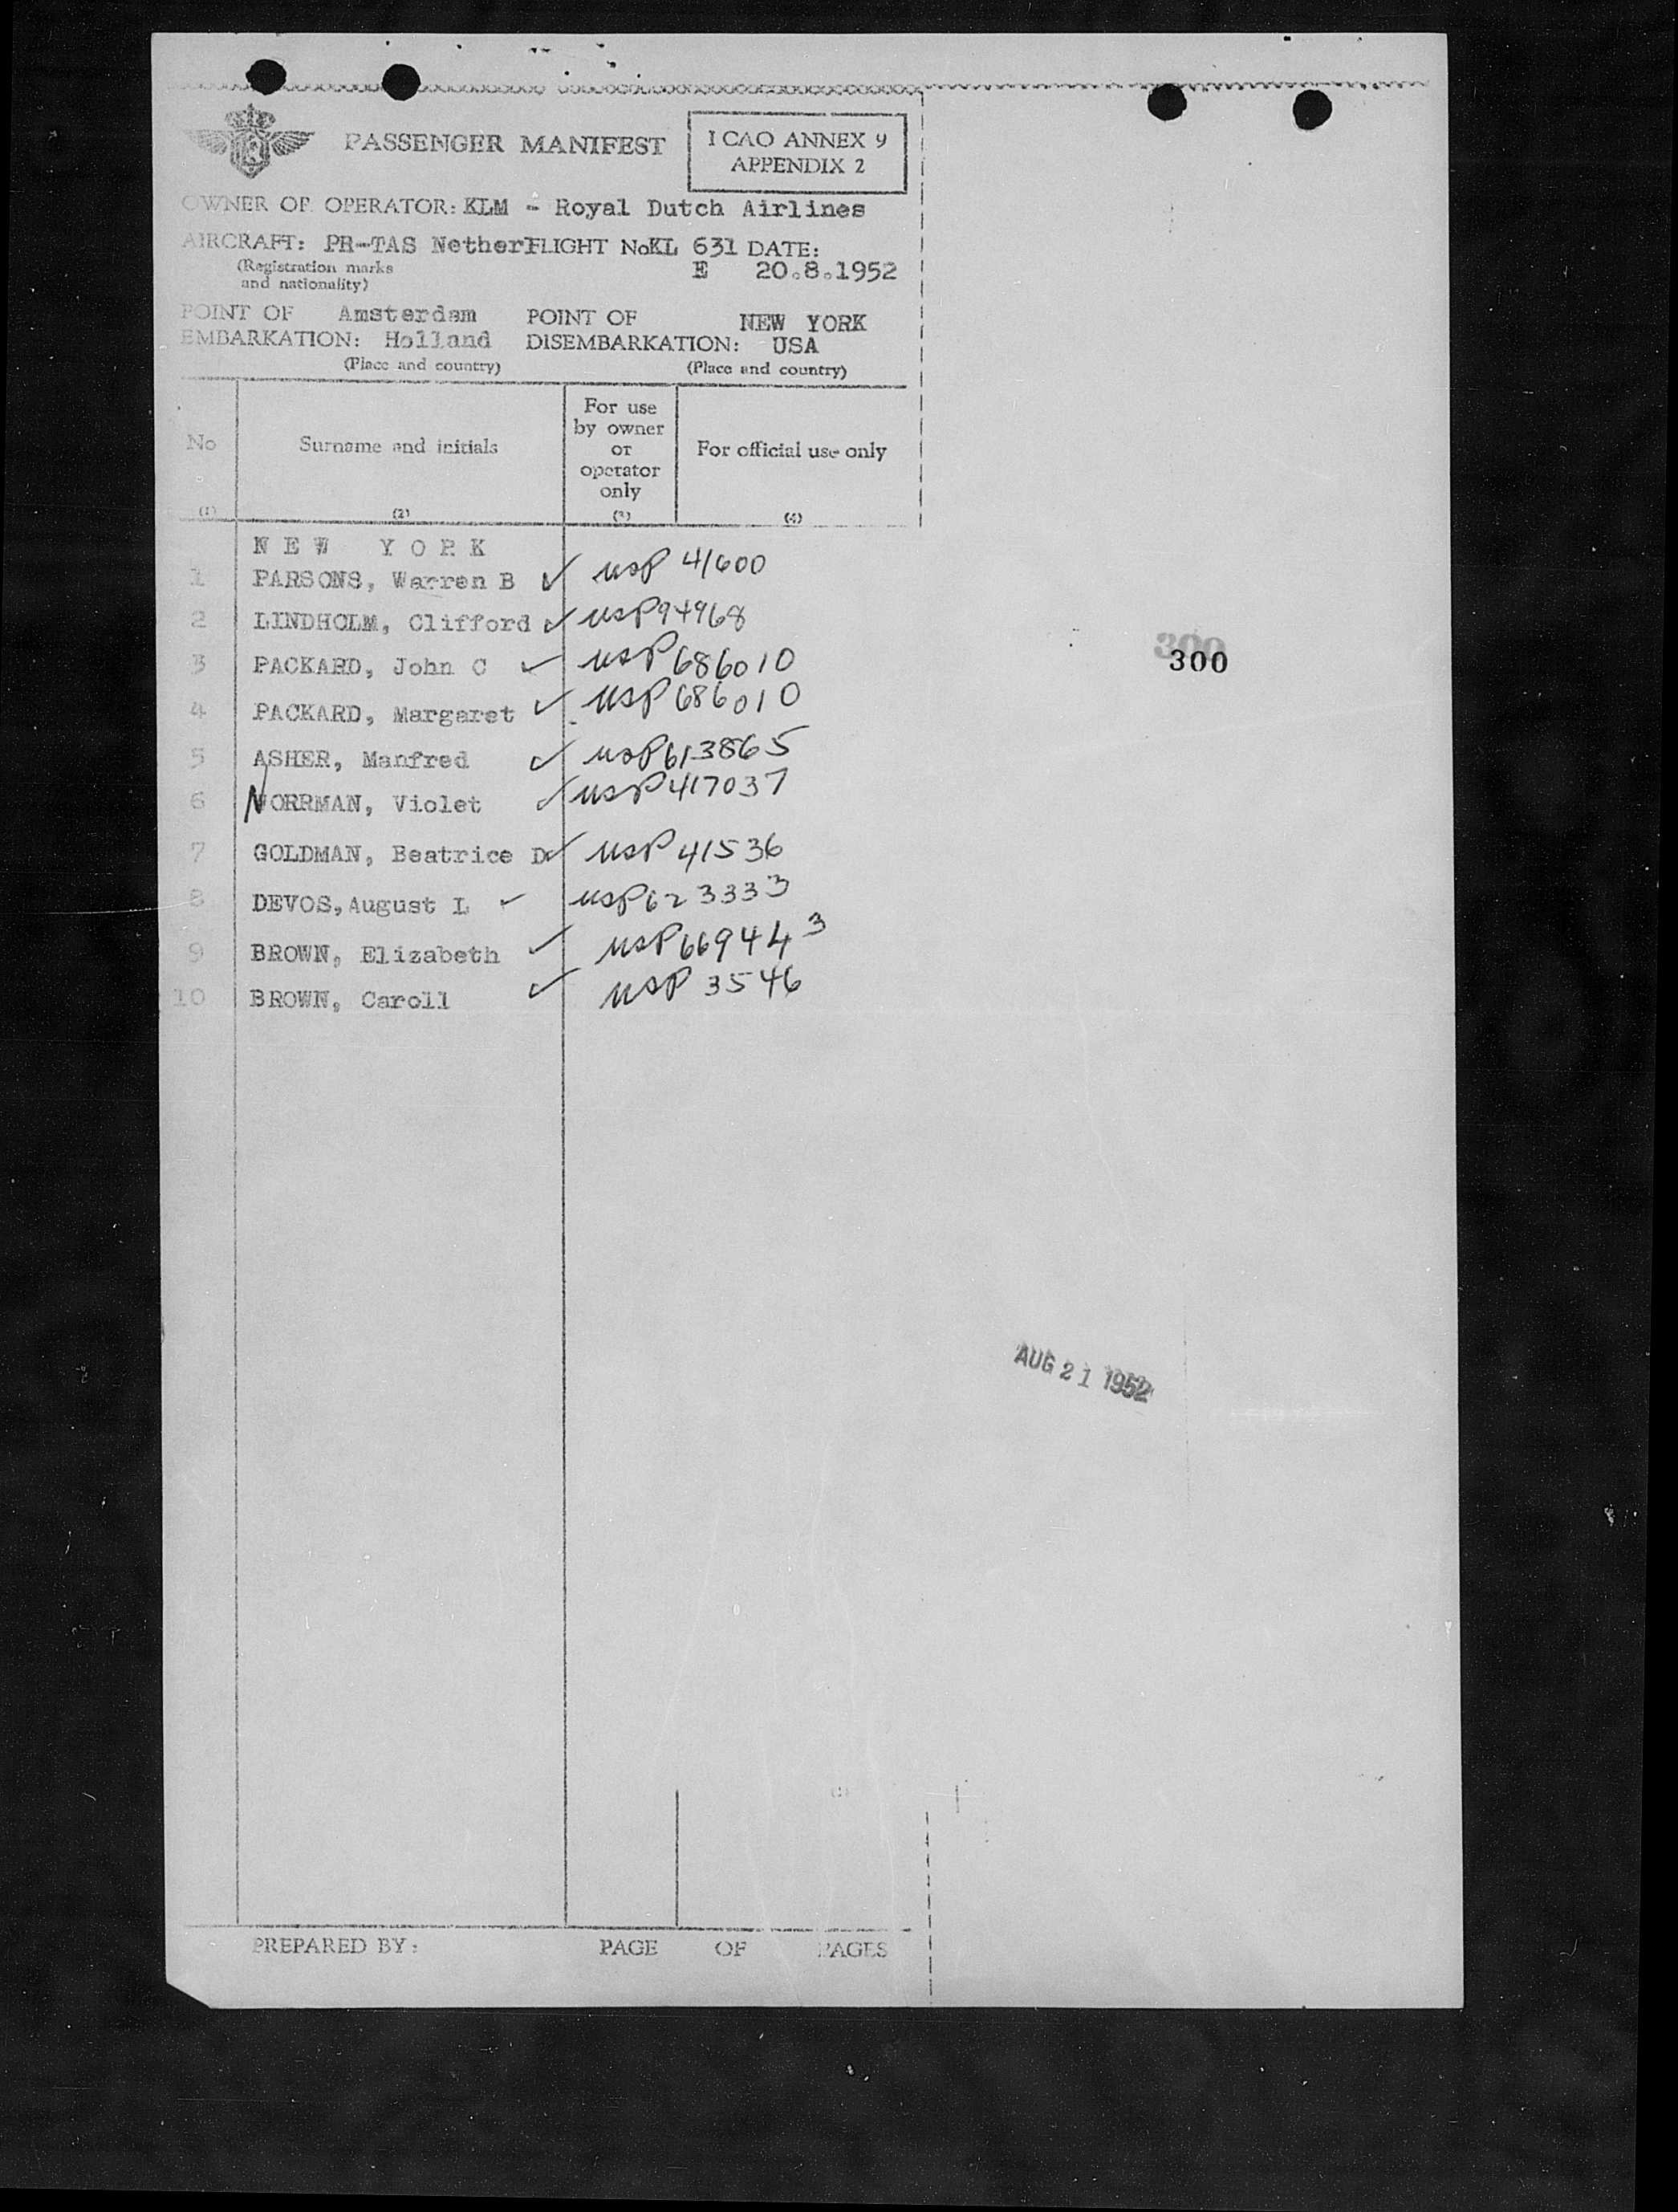 PASSENGER MANIFEST
I CAO ANNEX 9
APPENDIX 2
OWNER OR OPERATOR: KLM - Royal Dutch Airlines
AIRCRAFT: PH-TAS Nether FLIGHT No KL 631 DATE:
(Registration marks
and nationality)
E 20.8.1952
POINT OF Amsterdam POINT OF NEW YORK
EMBARKATION: Holland DISEMBARKATION: USA
(Place and country) (Place and country)
No
Surname and initials
For use
by owner
or
operator
only
For official use only
(1) (2) (3) (4)
NEW YORK
1 PARSONS, Warren B ✓ USP 41600
2 LINDHOLM, Clifford ✓ USP 94968
3 PACKARD, John C ✓ USP 686010
4 PACKARD, Margaret ✓ USP 686010
5 ASHER, Manfred ✓ USP 613865
6 NORRMAN, Violet ✓ USP 417037
7 GOLDMAN, Beatrice D ✓ USP 41536
8 DEVOS, August L ✓ USP 623333
9 BROWN, Elizabeth ✓ USP 669443
10 BROWN, Caroll ✓ USP 3546
300
300
AUG 21 1952
PREPARED BY: PAGE OF PAGES